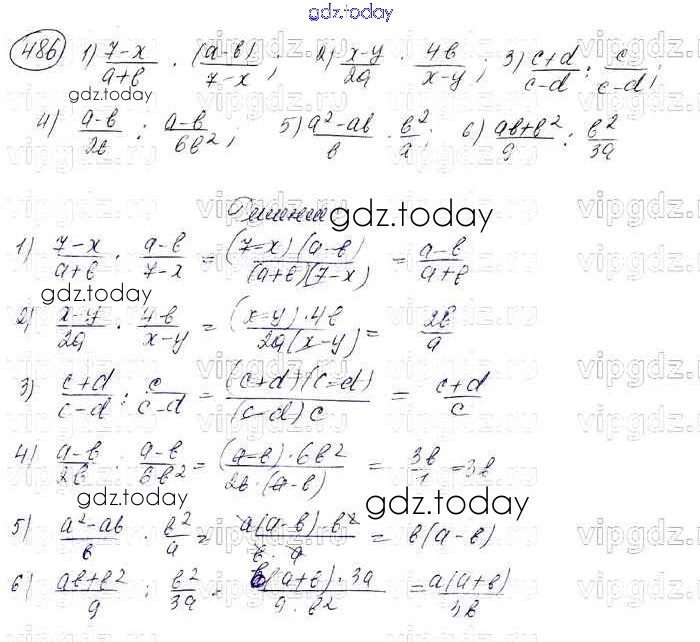 gdz.today
486 1) (7-x)/(a+b) · (a-b)/(7-x); 2) (x-y)/(2a) · (4b)/(x-y); 3) (c+d)/(c-d) : c/(c-d);
gdz.today
4) (a-b)/(2b) : (a-b)/(6b²); 5) (a²-ab)/b · b²/a; 6) (ab+b²)/9 : b²/(3a)
Решение
gdz.today
1) (7-x)/(a+b) · (a-b)/(7-x) = ((7-x)(a-b))/((a+b)(7-x)) = (a-b)/(a+b)
gdz.today
2) (x-y)/(2a) · (4b)/(x-y) = ((x-y)·4b)/(2a(x-y)) = (2b)/a
3) (c+d)/(c-d) : c/(c-d) = ((c+d)(c-d))/((c-d)c) = (c+d)/c
4) (a-b)/(2b) : (a-b)/(6b²) = ((a-b)·6b²)/(2b·(a-b)) = (3b)/1 = 3b
gdz.today
gdz.today
5) (a²-ab)/b · b²/a = (a(a-b)·b²)/(b·a) = b(a-b)
6) (ab+b²)/9 : b²/(3a) = (b(a+b)·3a)/(9·b²) = (a(a+b))/(3b)
vipgdz.ru